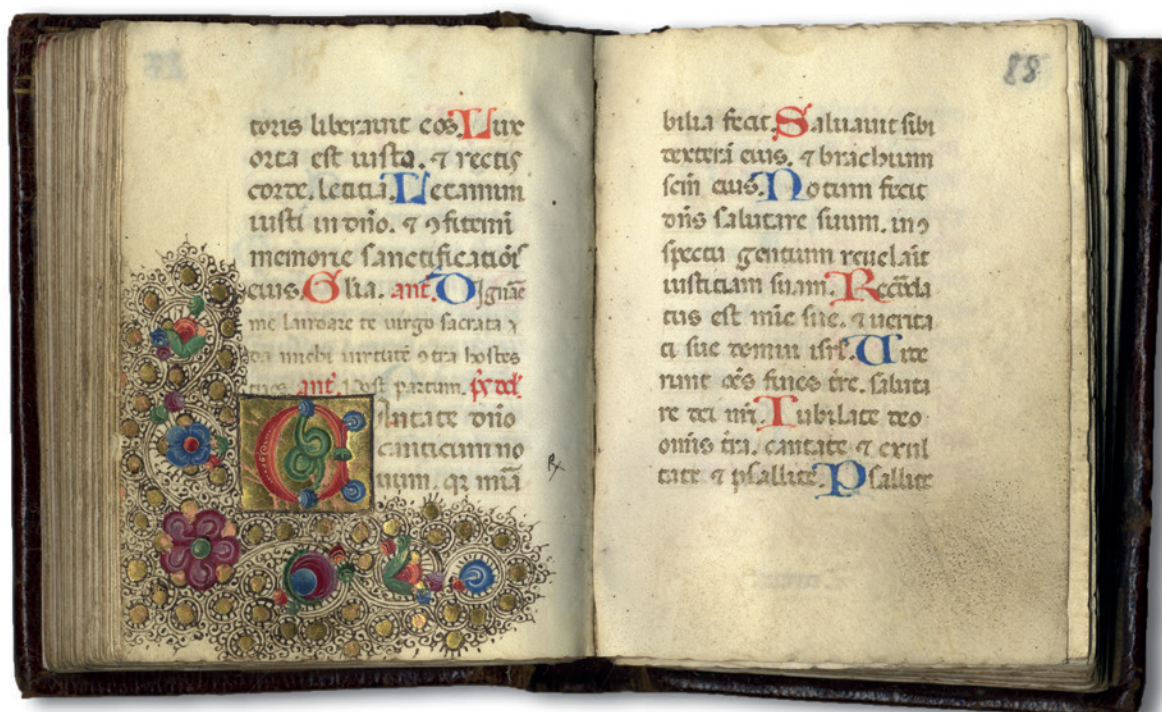 toris liberauit eos. Lux
orta est iusto. ⁊ rectis
corde. letitia. Letamini
iusti in dño. ⁊ ꝯfitemī
memorie sanctificatiōis
eius. Glia. ant̄. Dignare
me laudare te uirgo sacrata ⁊
da michi uirtutē ꝯtra hostes
tuos. ant̄. Post partum. p̄s dd̄.
Cantate dño
canticum no
uum. qꝛ mira
88
bilia fecit. Saluauit sibi
dextera eius. ⁊ brachium
scm̄ eius. Notum fecit
dñs salutare suum. in ꝯ
spectu gentium reuelauit
iusticiam suam. Recorda
tus est mie sue. ⁊ uerita
ti sue domui isrl̄. Uide
runt oēs fines tre. saluta
re dei nr̄i. Iubilate deo
omīs tr̄a. cantate ⁊ exul
tate ⁊ psallite. Psallite